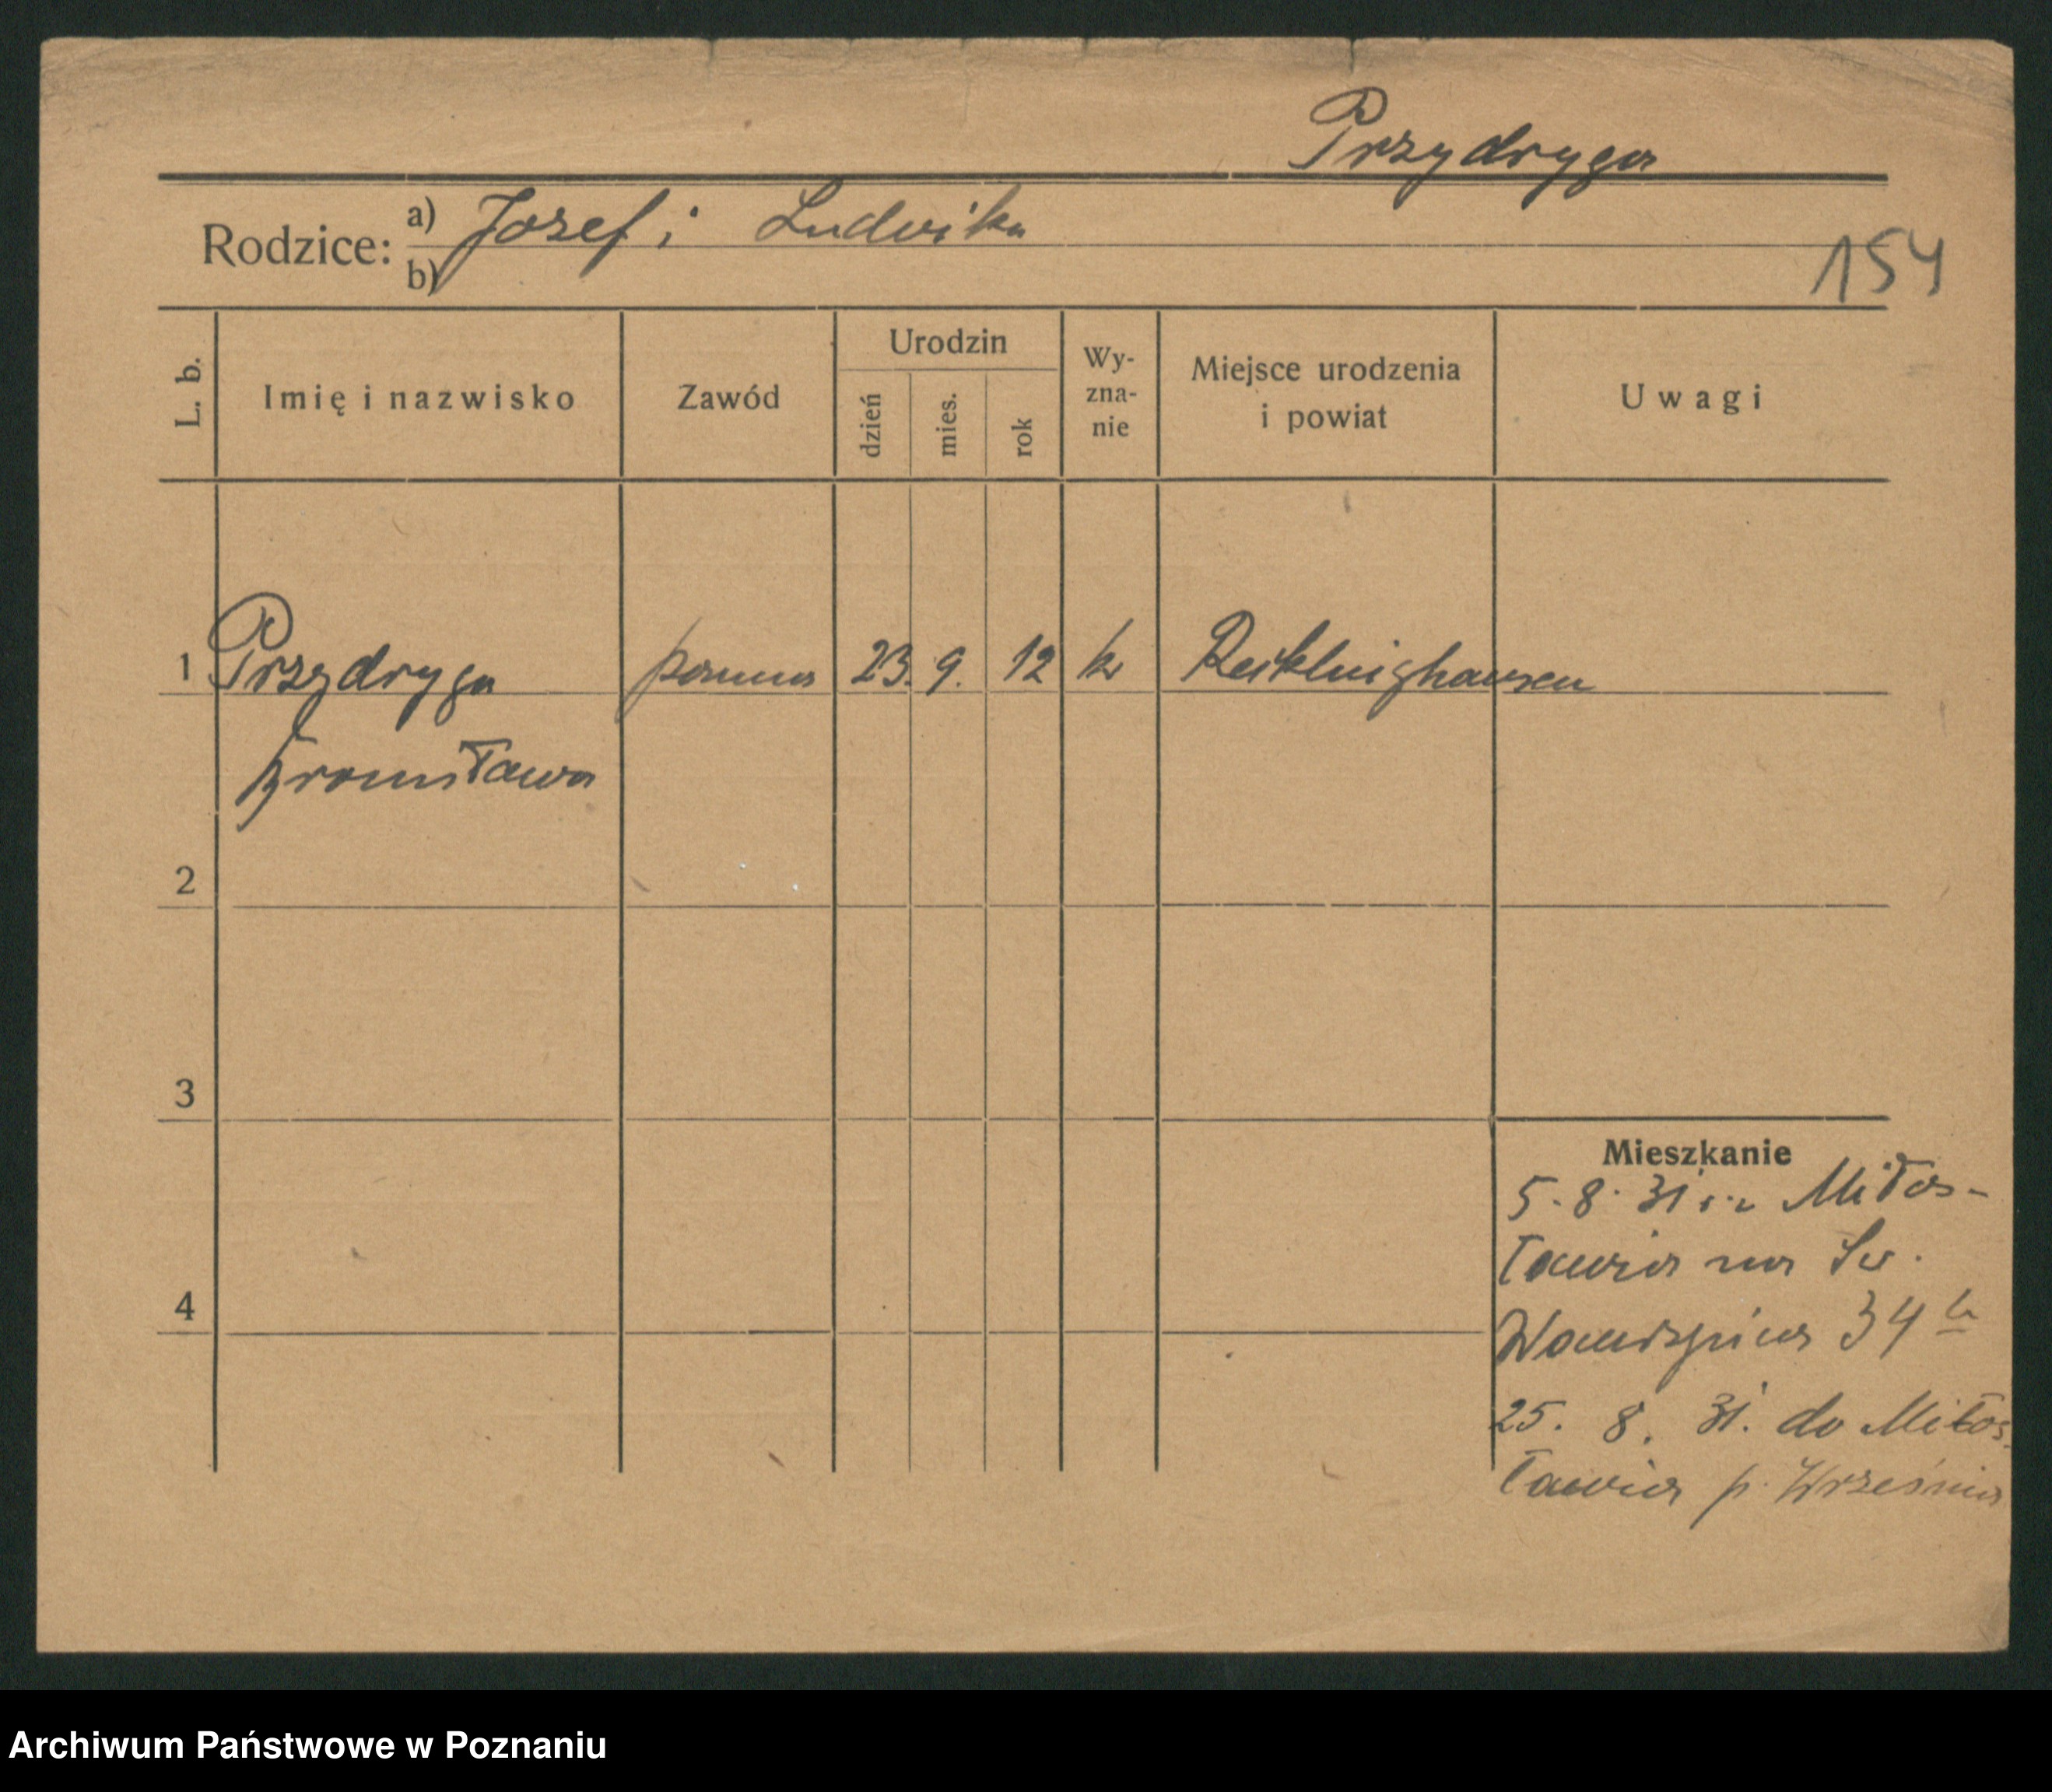 Przydryga
Rodzice: a) Jozef i Ludwika
b)
154
L. b.
Imię i nazwisko
Zawód
Urodzin
dzień
mies.
rok
Wy-
zna-
nie
Miejsce urodzenia
i powiat
Uwagi
1 Przydryga panna 23. 9. 12 k Reiklinghausen
Bronisława
2
3
4
Mieszkanie
5. 8. 31 Miłos-
ławia na Św.
Wawrzyńca 34
25. 8. 31. do Miłos-
ławia p. Września
Archiwum Państwowe w Poznaniu